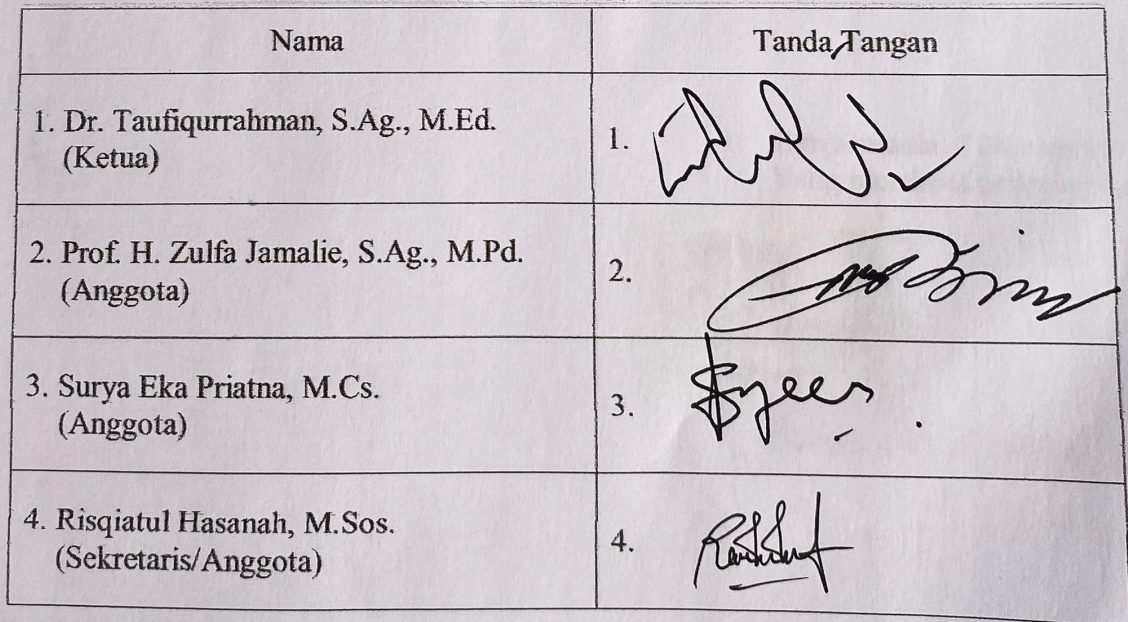 Nama
Tanda Tangan
1. Dr. Taufiqurrahman, S.Ag., M.Ed.
(Ketua)
1.
2. Prof. H. Zulfa Jamalie, S.Ag., M.Pd.
(Anggota)
2.
3. Surya Eka Priatna, M.Cs.
(Anggota)
3.
4. Risqiatul Hasanah, M.Sos.
(Sekretaris/Anggota)
4.